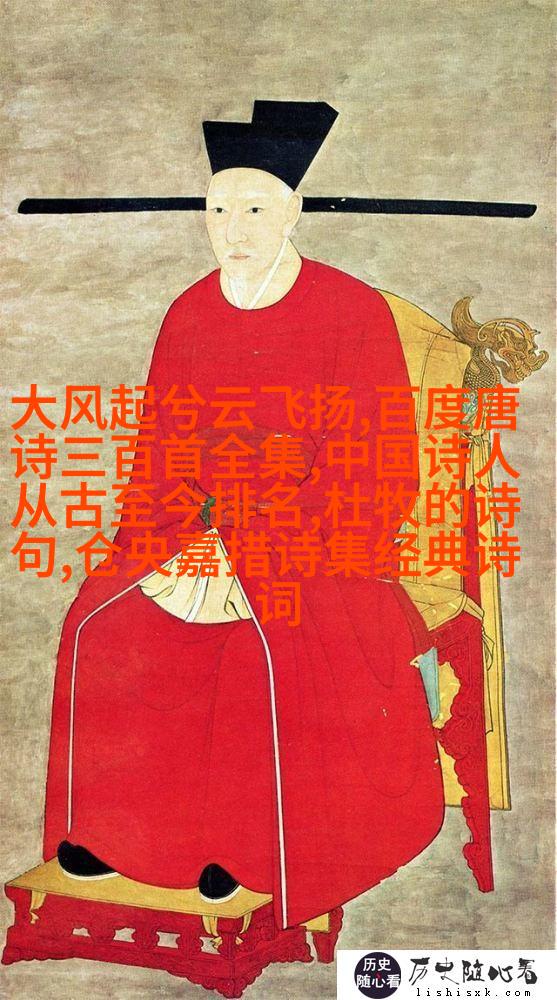 大风起兮云飞扬,百度唐
诗三百首全集,中国诗人
从古至今排名,杜牧的诗
句,仓央嘉措诗集经典诗
词
历史
随心看
历史随心看
lishisxk.com